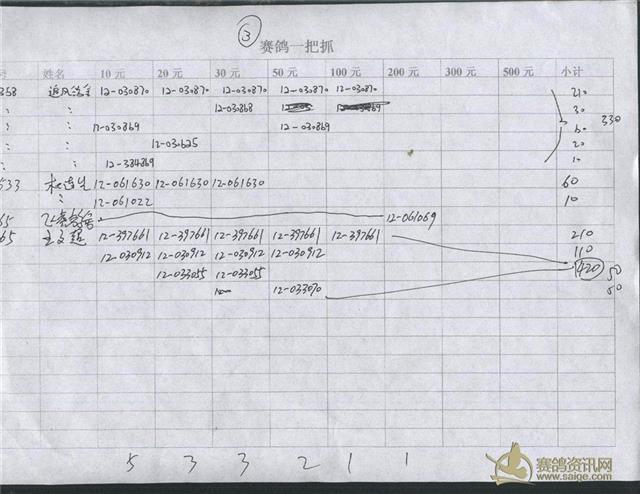 ③
赛鸽一把抓
号 姓名 10元 20元 30元 50元 100元 200元 300元 500元 小计
368 12-030870 12-030870 12-030870 12-030870 12-030870 210
〃 〃 12-030868 30
〃 〃 12-030869 12-030869 60 330
〃 〃 12-030625 20
〃 〃 12-384869 10
533 12-061630 12-061630 12-061630 60
〃 12-061022 10
65 12-061069
65 王文超 12-397661 12-397661 12-397661 12-397661 12-397661 210
12-030912 12-030912 12-030912 12-030912 110
12-033055 12-033055 420 50
12-033070 50
5 3 3 2 1 1
赛鸽资讯网
www.saige.com